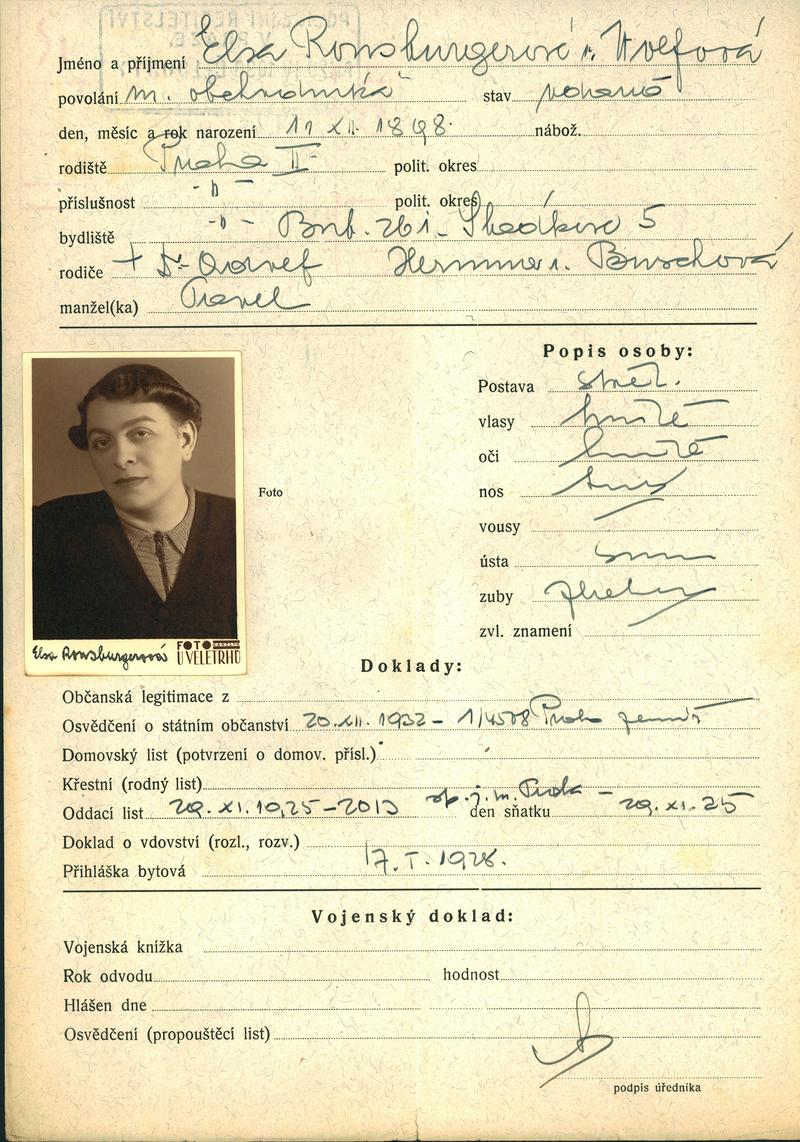 POLICEJNÍ ŘEDITELSTVÍ
V PRAZE
Jméno a příjmení Elsa Ronsburgerová r. Wolfová
povolání m. obchodníka stav vdaná
den, měsíc a rok narození 11 XII. 1898. nábož.
rodiště Praha II polit. okres
příslušnost -"- polit. okres
bydliště -"- Bub. 261 - 5
rodiče + Dr Adolf Hermina r. Buschová
manžel(ka) Pavel
Popis osoby:
Postava stř.
vlasy hnědé
oči hnědé
nos
vousy
ústa
zuby
zvl. znamení
Foto
Elsa Ronsburgerová FOTO U VELETRHŮ
Doklady:
Občanská legitimace z
Osvědčení o státním občanství 20.XII. 1932 - 1/4508 Praha zemsk
Domovský list (potvrzení o domov. přísl.)
Křestní (rodný list)
Oddací list 29. XI. 1925 - 2013 m. Praha - den sňatku 29. XI. 25
Doklad o vdovství (rozl., rozv.)
Přihláška bytová 17. I. 1928.
Vojenský doklad:
Vojenská knížka
Rok odvodu hodnost
Hlášen dne
Osvědčení (propouštěcí list)
podpis úředníka